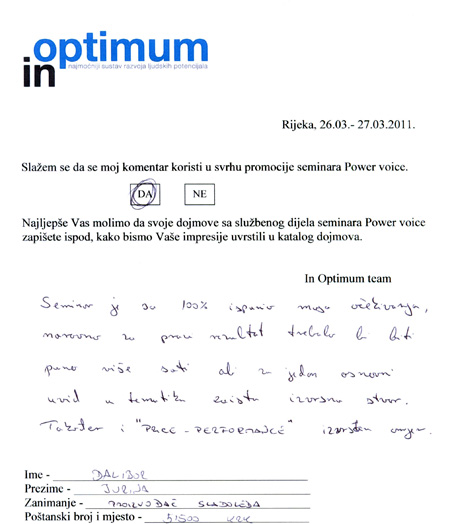 in optimum
najmoćniji sustav razvoja ljudskih potencijala
Rijeka, 26.03.- 27.03.2011.
Slažem se da se moj komentar koristi u svrhu promocije seminara Power voice.
DA NE
Najljepše Vas molimo da svoje dojmove sa službenog dijela seminara Power voice
zapišete ispod, kako bismo Vaše impresije uvrstili u katalog dojmova.
In Optimum team
Seminar je sa 100% ispunio moja očekivanja,
naravno za pravi rezultat trebalo bi biti
puno više sati ali za jedan osnovni
uvid u tematiku zaista izvrsna stvar.
Također i "PRICE - PERFORMANCE" izvrstan omjer.
Ime - DALIBOR
Prezime - JURINA
Zanimanje - PROIZVOĐAČ SLADOLEDA
Poštanski broj i mjesto - 51500 KRK